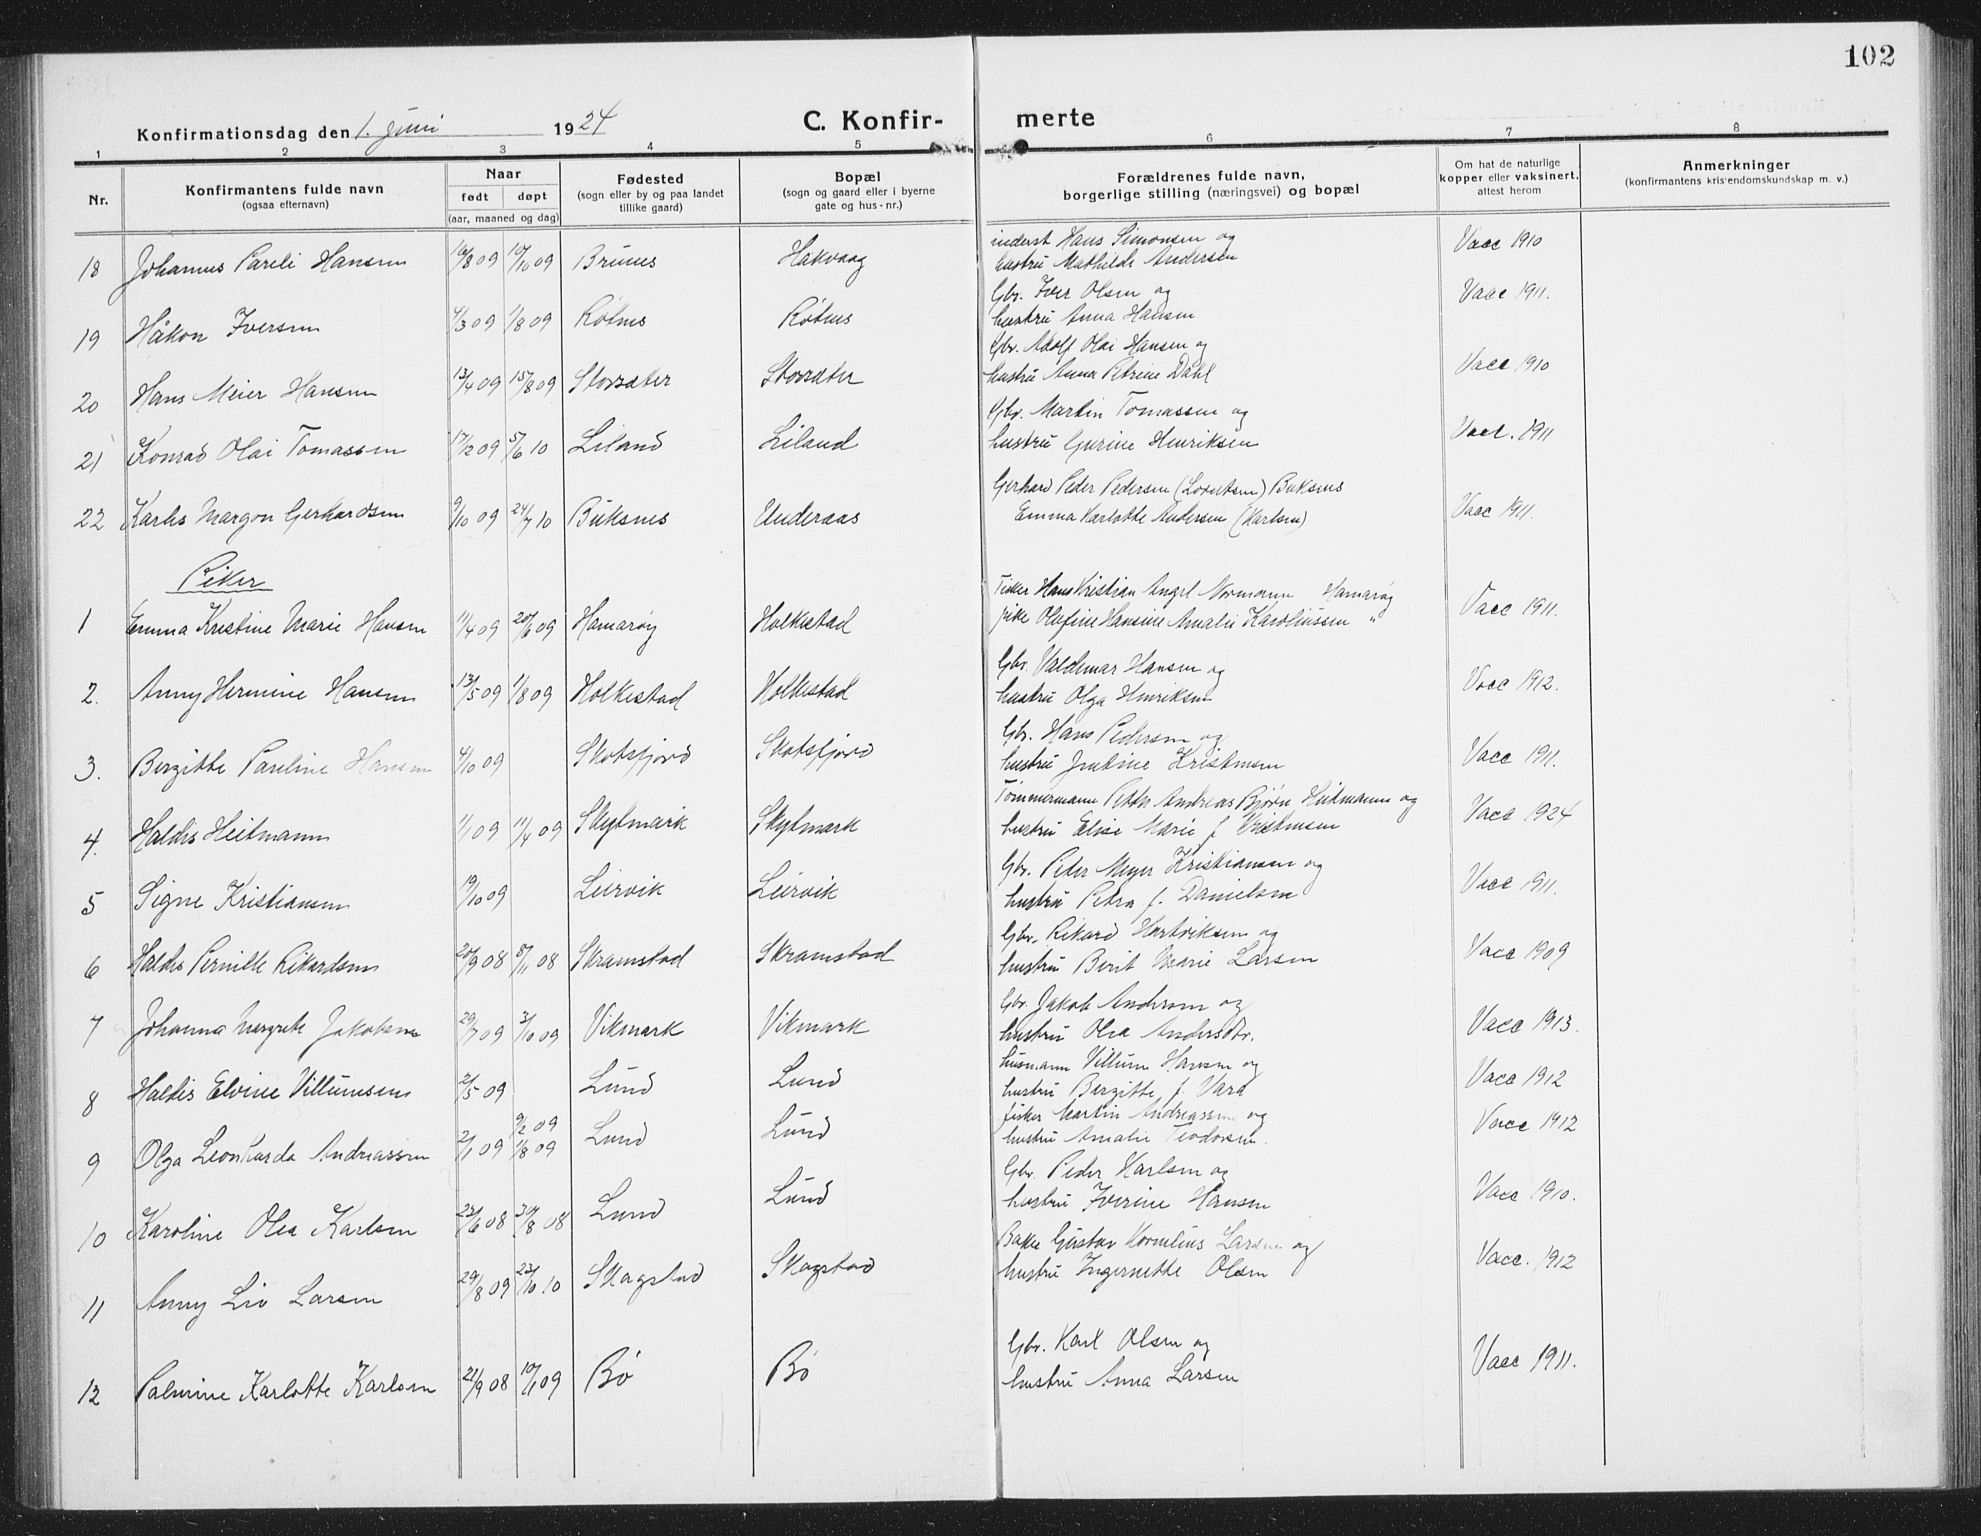 102
Konfirmationsdag den 1. juni 1924
C. Konfirmerte
1 2 3 4 5 6 7 8
Nr.
Konfirmantens fulde navn
(ogsaa efternavn)
Naar
født døpt
(aar, maaned og dag)
Fødested
(sogn eller by og paa landet
tillike gaard)
Bopæl
(sogn og gaard eller i byerne
gate og hus-nr.)
Forældrenes fulde navn,
borgerlige stilling (næringsvei) og bopæl
Om hat de naturlige
kopper eller vaksinert,
attest herom
Anmerkninger
(konfirmantens kristendomskundskap m. v.)
18 Johannes Pareli Hansen 16/8 09 10/10 09 Brunes Hakvaag inderst Hans Simonsen og Vacc 1910
hustru Mathilde Andersen
19 Håkon Iversen 4/3 09 1/8 09 Rötnes Rötnes Gbr. Iver Olsen og Vacc 1911.
hustru Anna Hansen
20 Hans Meier Hansen 13/4 09 15/8 09 Storsæter Storsæter Gbr. Adolf Olai Hansen og Vacc 1910
hustru Anna Petrine Dahl
21 Konrad Olai Tomassen 17/12 09 5/6 10 Liland Liland Gbr. Martin Tomassen og Vacc. 1911
hustru Gurine Henriksen
22 Karlis Margon Gerhardsen 9/10 09 24/7 10 Buksnes Underaas Gerhard Peder Pedersen (Lorentsen) Buksnes Vacc 1911.
Emma Karlotte Andersen (Karlsen)
Piker
1 Emma Kristine Marie Hansen 11/4 09 20/6 09 Hamarøy Holkestad Fisker Hans Kristian Angel Normann Hamarøy Vacc 1911.
pike Olufine Hansine Amalie Karoliussen "
2. Anny Hermine Hansen 13/5 09 1/8 09 Holkestad Holkestad Gbr. Valdemar Hansen og Vacc 1912.
hustru Olga Henriksen
3. Bergitte Pauline Hansen 4/10 09 Skotsfjord Skotsfjord Gbr. Hans Pedersen og Vacc 1911.
hustru Kristensen
4. Haldis Heitmann 1/1 09 11/4 09 Skytmark Skytmark Tömmermann Petter Andreas Bjørn Heitmann og Vacc 1924
hustru Elise Marie f. Kristensen
5 Signe Kristiansen 19/10 09 Leirvik Leirvik Gbr. Peder Meyer Kristiansen og Vacc 1911.
hustru Petra f. Danielsen
6 Haldis Pernille Rikardsen 20/9 08 8/11 08 Skramstad Skramstad Gbr. Rikard Hartviksen og Vacc 1909
hustru Berit Marie Larsen
7 Johanna Margrete Jakobsen 29/7 09 3/10 09 Vikmark Vikmark Gbr. Jakob Andersen og Vacc 1913.
hustru Olea Andersdtr.
8 Haldis Elvine Villumsen 2/5 09 Lund Lund husmann Villum Hansen og Vacc 1912
hustru Bergitte f. Vard
9 Olga Leonharda Andreassen 2/1 09 9/2 09 1/8 09 Lund Lund fisker Martin Andreassen og Vacc 1912
hustru Amalie Teodorsen.
10 Karoline Olea Karlsen 23/6 08 30/8 08 Lund Lund Gbr. Peder Karlsen og Vacc 1910.
hustru Iverine Hansen
11 Anny Liv Larsen 29/8 09 23/10 10 Skagstad Skagstad Baker Gustav Kornelius Larsen og Vacc. 1912
hustru Ingernette Olsen
12 Palmine Karlotte Karlsen 21/9 08 10/1 09 Bø Bø Gbr. Karl Olsen og Vacc 1911.
hustru Anna Larsen